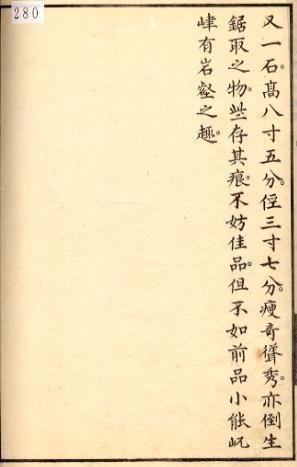 280
又一石。髙八寸五分。徑三寸七分。瘦奇聳秀。亦倒生
鋸取之物。些存其痕。不妨佳品。但不如前品小能屹
峍有岩壑之趣。